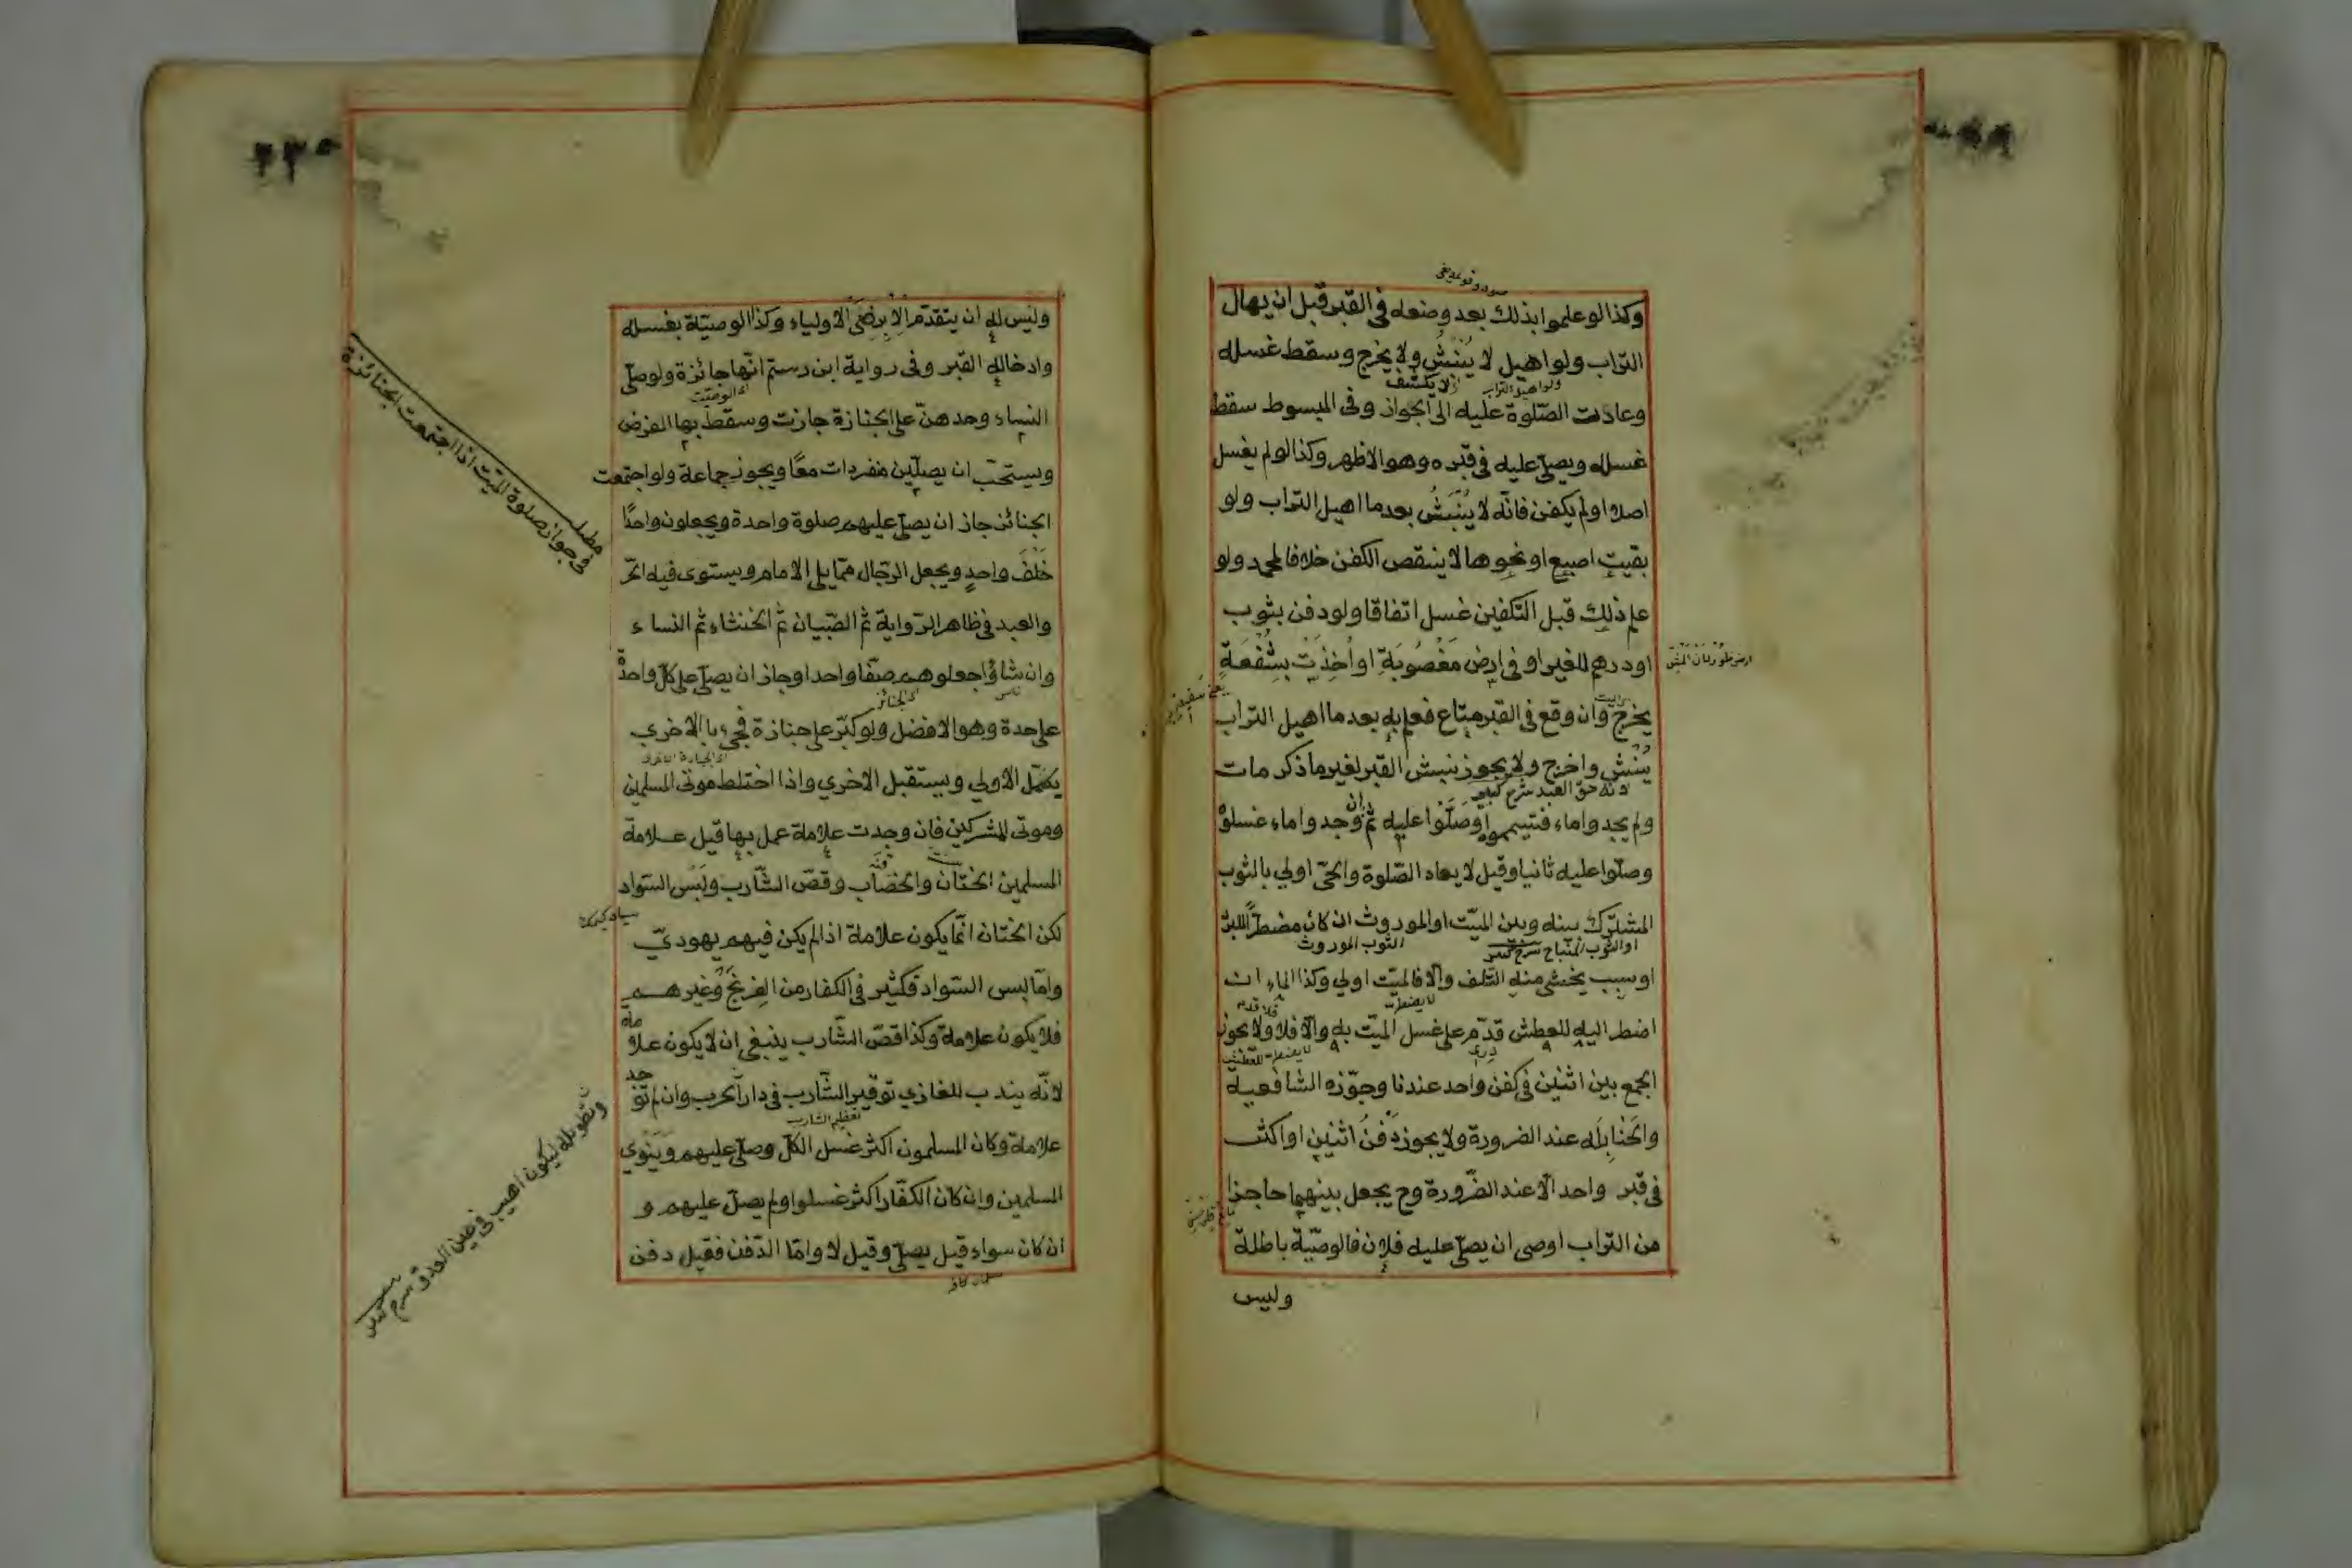 وكذا لو علموا بذلك بعد وضعه في القبر قبل ان يهال
التراب ولو اهيل لا يُنْبَشُ ولا يخرج وسقط غسله
ولو اهيل التراب لا يكشف
وعادت الصّلوة عليه الى الجواز وفى المبسوط سقط
غسله ويصلّى عليه فى قبره وهو الاظهر وكذا لو لم يغسل
اصلا او لم يكفن فانّه لا يُنْبَشُ بعد ما اهيل التراب ولو
بقيت اصبع او نحوها لا ينقص الكفن خلافا لمحمد ولو
علم ذلك قبل التكفين غسل اتفاقا ولو دفن بثوب
او درهم للغير او فى ارض مَغْصُوبَةٍ او اُخِذَتْ بِشُفْعَةٍ
يخرج وان وقع فى القبر متاع فعلم به بعد ما اهيل التراب
يُنْبَشُ واخرج ولا يجوز نبش القبر لغير ما ذكر مات
لانه حقّ العبد شرح كبير
ولم يجدوا ماء فتيمموه وصَلَّوْا عليه ثمّ ان وجدوا ماء غسلوْ
وصلّوا عليه ثانيا وقيل لا يعاد الصّلوة والحىّ اولي بالثوب
المشترك بينه وبين الميّت او الموروث ان كان مضطرًّا للبرد
او الثوب المباح شرح كبير
الثوب الموروث
او سبب يخشى منه التلف والّا فالميّت اولي وكذا الماء ان
اضطر اليه للعطش قدّم على غسل الميّت به والّا فلا ولا يجوز
الجمع بين اثنين فى كفن واحد عندنا وجوّزه الشافعية
والحَنابِلَه عند الضرورة ولا يجوز دَفْنُ اثنين او اكثر
فى قبر واحد الّا عند الضّرورة وح يجعل بينهما حاجزا
من التراب اوصى ان يصلّى عليه فلان فالوصيّة باطلة
وليس
٢٣٥
وليس له ان يتقدّم الا برِضَى الاولياء وكذا الوصيّة بغسله
وادخاله القبر وفى رواية ابن رستم انّها جائزة ولو صلّى
اى الوصيّت
النساء وحدهنّ على الجنازة جازت وسقط بها الفرض
ويستحبّ ان يصلّين منفردات معًا ويجوز جماعة ولو اجتمعت
الجنائز جاز ان يصلّى عليهم صلوة واحدة ويجعلون واحدًا
خَلْفَ واحدٍ ويجعل الرّجال ممّا يلى الامام ويستوى فيه الحرّ
والعبد فى ظاهر الرّواية ثمّ الصّبيان ثمّ الخنثاء ثمّ النساء
وان شاؤا جعلوهم صفّا واحدا وجاز ان يصلّى على كلّ واحدة
اى الجنائز
على حدة وهو الافضل ولو كبّر على جنازة فجىء بالاخري
يكمّل الاولي ويستقبل الاخري واذا اختلط موتى المسلمين
وموتى المشركين فان وجدت علامة عمل بها قيل علامة
المسلمين الختان والخضاب وقصّ الشّارب ولبس السّواد
لكن الختان انّما يكون علامة اذا لم يكن فيهم يهوديّ
وامّا لبس السّواد فكثير فى الكفار من الفرنج وغيرهم
فلا يكون علامة وكذا قصّ الشّارب ينبغى ان لا يكون علامة
لانّه يندب للغازي توقير الشّارب فى دار الحرب وان لم توجد
تعظيم الشارب
علامة وكان المسلمون اكثر غسل الكلّ وصلّى عليهم ويَنْوي
المسلمين وان كان الكفّار اكثر غسلوا ولم يصلّ عليهم و
ان كان سواء قيل يصلّى وقيل لا وامّا الدّفن فقيل دفن
مطلب
فى جواز صلوة الميّت اذا اجتمعت الجنائزة
وتطويله ليكون اهيب فى عين العدو شرح كبير